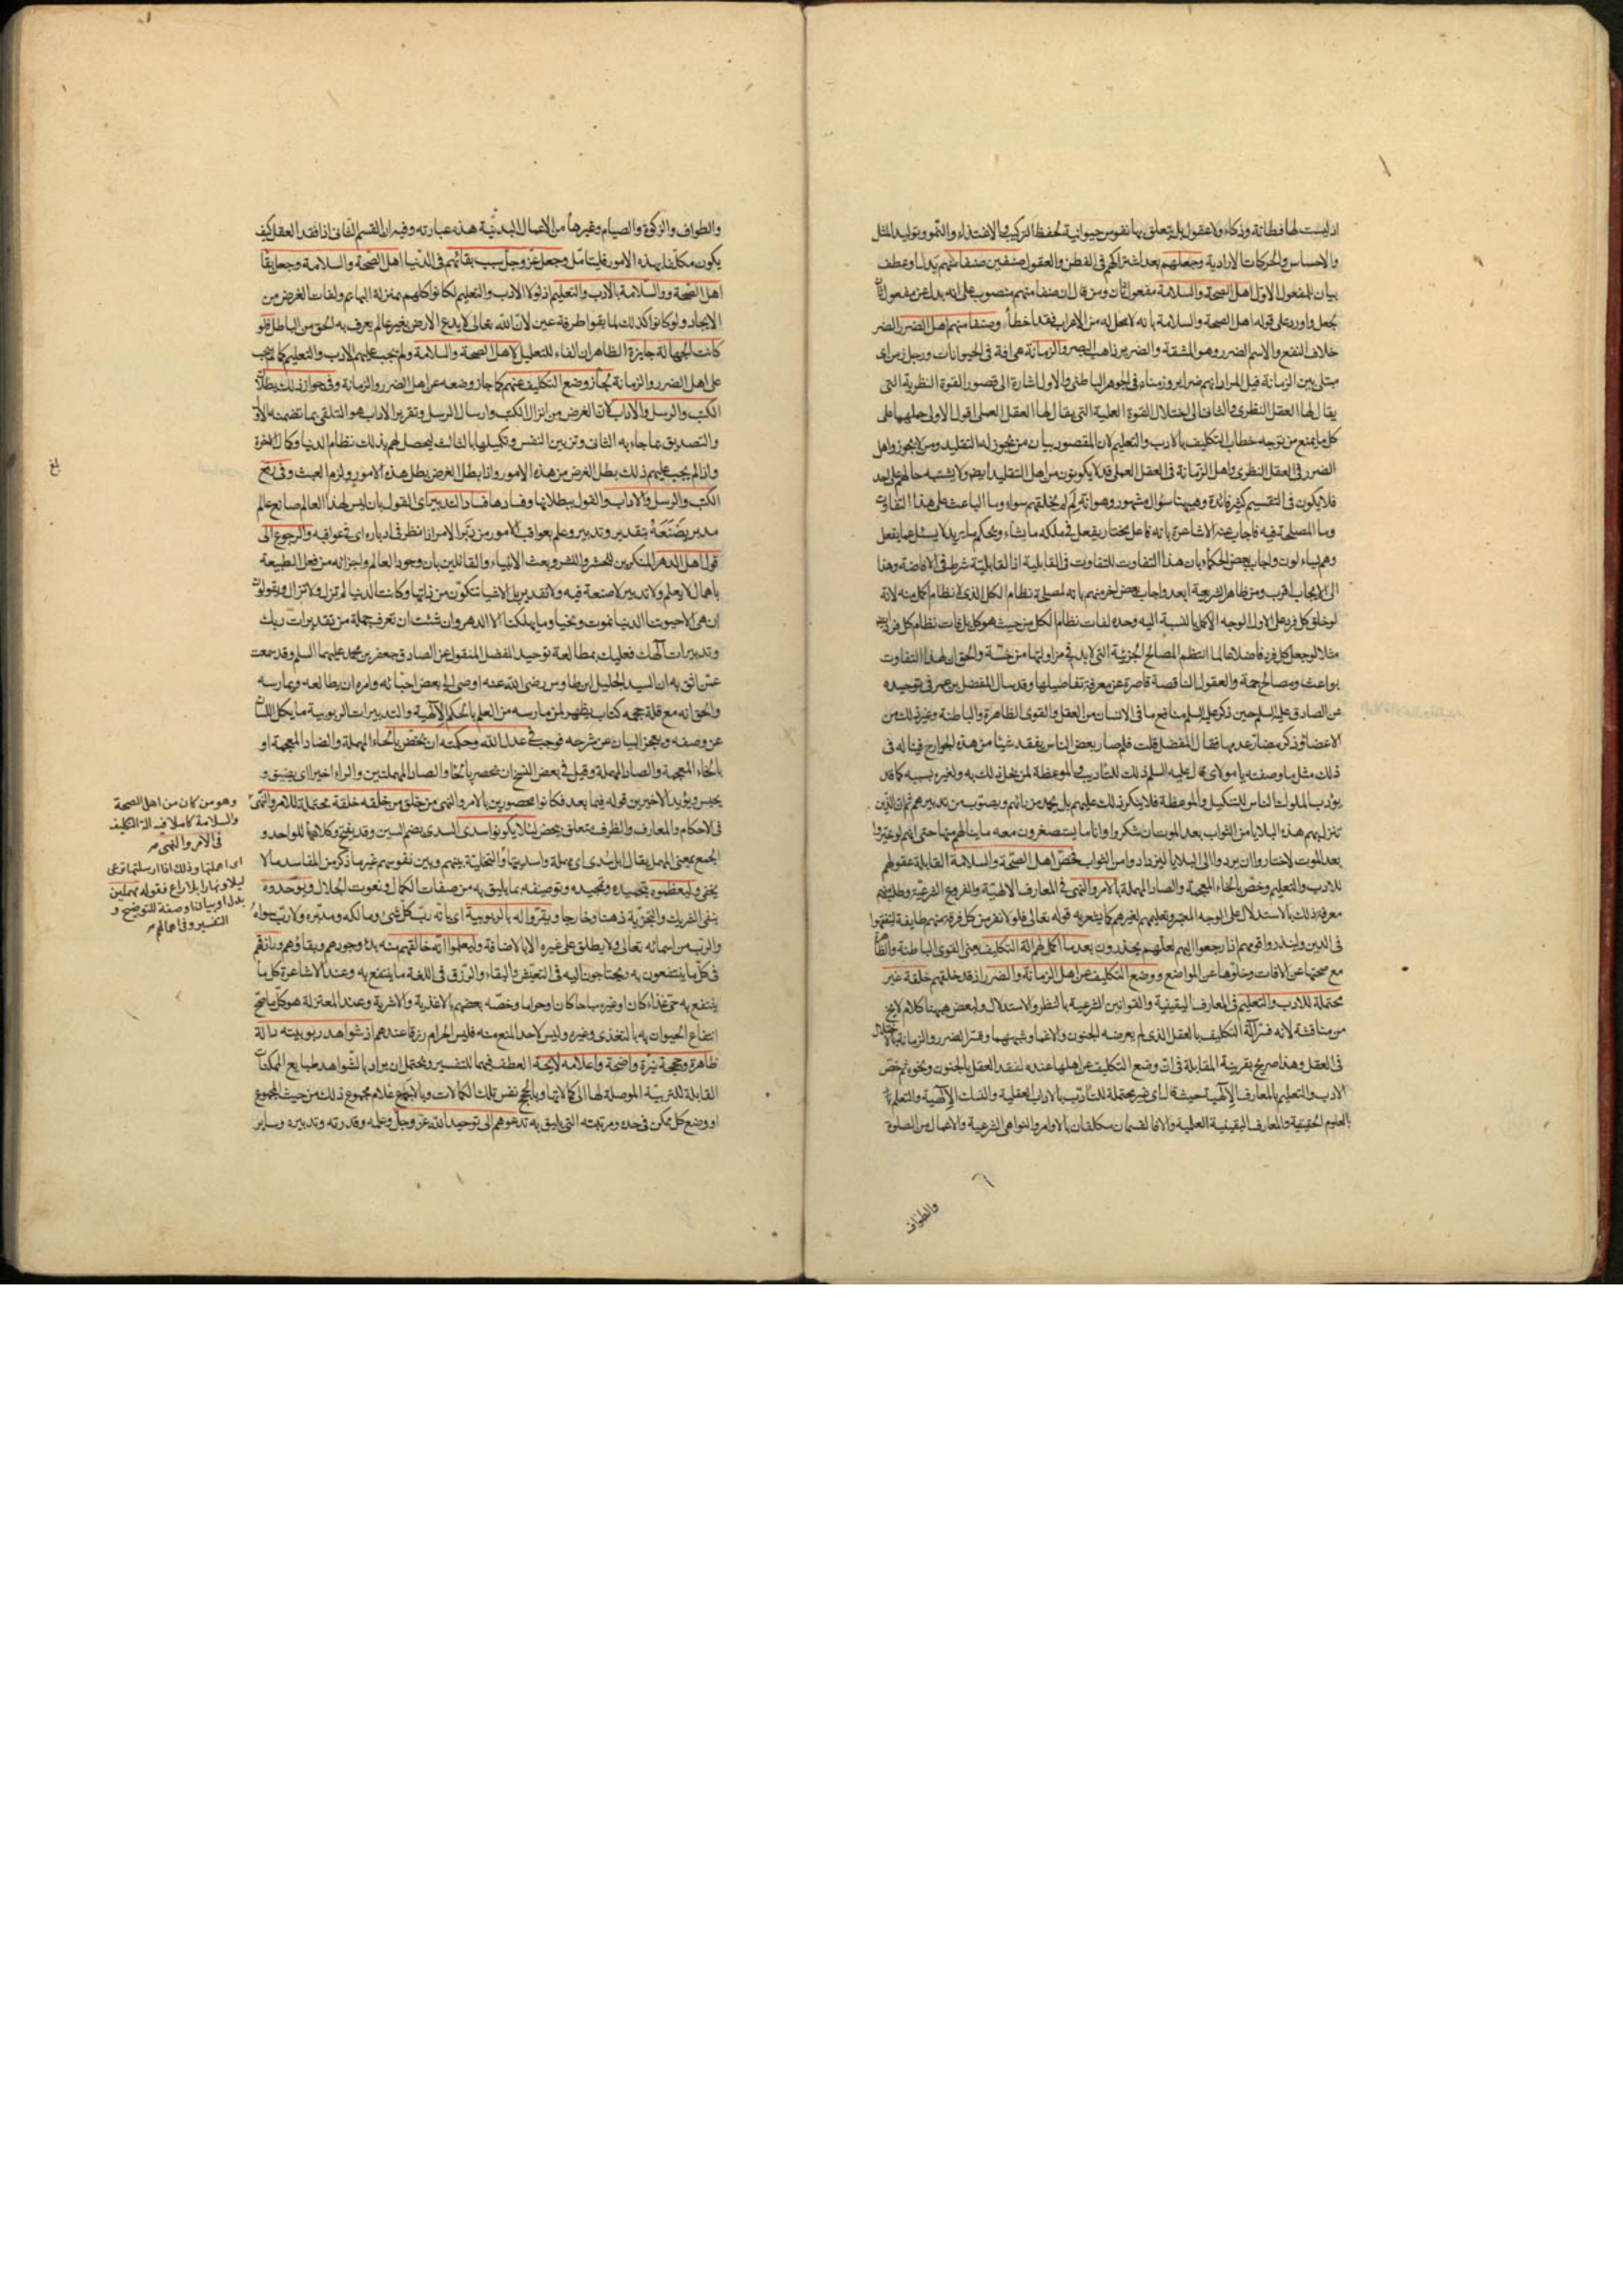 اذ ليست لها فطانة وذكاء ولا عقول بل يتعلق بها نفوس حيوانية لحفظ التركيب والاغتذاء والنمو وتوليد المثل
والاحساس والحركات الارادية وجعلهم بعد اشتراكهم فى الفطن والعقول صنفين صنفا منهم بدل او عطف
بيان للمفعول الاول اهل الصحة والسلامة مفعول ثان ومن قال ان صنفا منهم منصوب على انه بدل عن مفعول
جعل واورد على قوله اهل الصحة والسلامة بانه لا محل له من الاعراب فقد اخطأ وصنفا منهم اهل الضرر الضر
خلاف النفع والاسم الضرر وهو المشقة والضرير ذاهب البصر والزمانة هى افة فى الحيوانات ورجل زمن اى
مبتلى بين الزمانة قيل المراد انهم ضراير وزمناء فى الجوهر الباطنى والاول اشارة الى قصور القوة النظرية التى
يقال لها العقل النظرى والثانى الى اختلال القوة العملية التى يقال لها العقل العملى اقول الاولى حملهما على
كل ما يمنع من توجه خطاب التكليف بالادب والتعليم لان المقصود بيان من يجوز له التقليد ومن لا يجوز واهل
الضرر فى العقل النظرى واهل الزمانة فى العقل العملى قد لا يكونون من اهل التقليد ايضا ولا يشتبه حالهم على احد
فلا يكون فى التقسيم كثير فائدة وههنا سؤال مشهور وهو انه لم لم يخلقهم سواء وما الباعث على هذا التفاوت
وما المصلحة فيه فاجاب عنه الاشاعرة بانه فاعل مختار يفعل فى ملكه ما يشاء ويحكم ما يريد لا يسئل عما يفعل
وهم يسئلون واجاب بعض الحكماء بان هذا التفاوت للتفاوت فى القابلية اذ القابلية شرط فى الافاضة وهذا
الى الايجاب اقرب ومن ظاهر الشريعة ابعد واجاب بعض اخر منهم بانه لمصلحة نظام الكل الذى لا نظام اكمل منه لانه
لو خلق كل فرد على الاول الوجه الاكمل بالنسبة اليه وحده لفات نظام الكل من حيث هو كل بل فات نظام كل فرد ايضا
مثلا لو جعل كل فرد فاضلا عالما لما انتظم المصالح الجزئية التى لا بد فى مزاولتها من خسة والحق ان لهذا التفاوت
بواعث ومصالح جمة والعقول الناقصة قاصرة عن معرفة تفاصيلها وقد سال المفضل بن عمر فى توحيده
عن الصادق عليه السلم حين ذكر عليه السلم منافع ما فى الانسان من العقل والقوى الظاهرة والباطنة وغير ذلك من
الاعضاء وذكر مضار عدمها فقال المفضل قلت فلم صار بعض الناس يفقد شيئا من هذه الجوارح فيناله فى
ذلك مثل ما وصفته يا مولاى قال عليه السلم ذلك للتاديب والموعظة لمن يحل ذلك به ولغيره بسببه كما قد
يؤدب الملوك الناس للتنكيل والموعظة فلا ينكر ذلك عليهم بل يحمد من رائهم ويصوب من تدبيرهم ثم ان للذين
تنزل بهم هذه البلايا من الثواب بعد الموت ان شكروا وانابوا ما يستصغرون معه ما ينالهم منها حتى انهم لو خيروا
بعد الموت لاختاروا ان يردوا الى البلايا ليزدادوا من الثواب فخص اهل الصحة والسلامة القابلة عقولهم
للادب والتعليم وخص بالخاء المعجمة والصاد المهملة بالامر والنهى فى المعارف الالهية والفروع الشرعية وطلب منهم
معرفة ذلك بالاستدلال على الوجه المعتبر وتعليمهم لغيرهم كما يشعر به قوله تعالى فلولا نفر من كل فرقة منهم طايفة ليتفقهوا
فى الدين ولينذروا قومهم اذا رجعوا اليهم لعلهم يحذرون بعد ما اكمل لهم الة التكليف يعنى القوى الباطنة والظاهرة
مع صحتها عن الافات وخلوها عن المواضع ووضع التكليف عن اهل الزمانة والضرر اذ قد خلقهم خلقة غير
محتملة للادب والتعليم فى المعارف اليقينية والقوانين الشرعية بالنظر والاستدلال ولبعض ههنا كلام لا يخ
من مناقشة لانه فسر آلة التكليف بالعقل الذى لم يعرضه الجنون والاغماء وشبههما وفسر الضرر والزمانة باختلال
فى العقل وهذا صريح بقرينة المقابلة فى ان وضع التكليف عن اهلها عنده لفقد العقل بالجنون ونحوه ثم خص
الادب والتعليم بالمعارف الالهية حيث قال اى غير محتملة للتأدب بالاداب العقلية والنسك الالهية والتعلم
بالعلوم الحقيقية والمعارف اليقينية العلمية والا فالقسمان مكلفان بالاوامر والنواهى الشرعية والاعمال من الصلوة
والطواف
والطواف والزكوة والصيام وغيرها من الاعمال البدنية هذه عبارته وفيه ان القسم الثانى اذا فقد العقل كيف
يكون مكلفا بهذه الامور فليتامل وجعل عز وجل سبب بقائهم فى الدنيا اهل الصحة والسلامة وجعل بقا
اهل الصحة والسلامة بالادب والتعليم اذ لولا الادب والتعليم لكانوا كلهم بمنزلة البهائم ولفات الغرض من
الايجاد ولو كانوا كذلك لما بقوا طرفة عين لان الله تعالى لا يدع الارض بغير عالم يعرف به الحق من الباطل فلو
كانت الجهالة جايزة الظاهر ان الفاء للتعليل لاهل الصحة والسلامة ولم يجب عليهم الادب والتعليم كما لم يجب
على اهل الضرر والزمانة لجاز وضع التكليف عنهم كما جاز وضعه عن اهل الضرر والزمانة وفى جواز ذلك بطلان
الكتب والرسل والاداب لان الغرض من انزال الكتب وارسال الرسل وتقرير الاداب هو التلقى بما تضمنه الاول
والتصديق بما جاء به الثانى وتزيين النفس وتكميلها بالثالث ليحصل لهم بذلك نظام الدنيا وكمال الاخرة
واذا لم يجب عليهم ذلك بطل الغرض من هذه الامور واذا بطل الغرض بطل هذه الامور ولزم العبث وفى رفع
الكتب والرسل والاداب والقول ببطلانها وفسادها فساد التدبير اى القول بان ليس لهذا العالم صانع عالم
مدبر يصنعه بتقدير وتدبير وعلم بعواقب الامور من دبر الامر اذا نظر فى ادباره اى فى عواقبه والرجوع الى
قول اهل الدهر المنكرين للحشر والنشر وبعث الانبياء والقائلين بان وجود العالم واجزائه من فعل الطبيعة
باهمال لا بعلم ولا تدبير لا صنعة فيه ولا تقدير بل الاشياء تتكون من ذاتها وكانت الدنيا لم تزل ولا تزال ويقولون
ان هى الا حيوتنا الدنيا نموت ونحيا وما يهلكنا الا الدهر وان شئت ان تعرف جملة من تقديرات ربك
وتدبيرات الهك فعليك بمطالعة توحيد المفضل المنقول عن الصادق جعفر بن محمد عليهما السلم وقد سمعت
عمن اثق به ان السيد الجليل ابن طاوس رضى الله عنه اوصى الى بعض احبائه وامره ان يطالعه ويمارسه
والحق انه مع قلة حجمه كتاب يظهر لمن مارسه من العلم بالحكم الالهية والتدبيرات الربوبية ما يكل اللسان
عن وصفه ويعجز البيان عن شرحه فوجب فى عدل الله وحكمته ان يحض بالحاء المهملة والضاد المعجمة او
بالخاء المعجمة والصاد المهملة وقيل فى بعض النسخ ان يحصر بالحاء والصاد المهملتين والراء اخيرا اى يضيق و
يحبس ويؤيد الاخير من قوله فيما بعد فكانوا محصورين بالامر والنهى من خلق من خلقه خلقة محتملة للامر والنهى
فى الاحكام والمعارف والظرف متعلق بيحض لئلا يكونوا سدى السدى بضم السين وقد يفتح وكلاهما للواحد و
الجمع بمعنى المهمل يقال ابل سدى اى مهملة واسديتها والتخلية بينهم وبين نفوسهم غير ما ذكر من المفاسد ما لا
يخفى وليعظموه بتحميده وتمجيده وتوصيفه بما يليق به من صفات الكمال ونعوت الجلال ويوحدوه
بنفى الشريك والتجزية ذهنا وخارجا ويقروا له بالربوبية اى بانه رب كل شئ ومالكه ومدبره ولا رب سواه
والرب من اسمائه تعالى ولا يطلق على غيره الا بالاضافة وليعلموا انه خالقهم منه بدء وجودهم وبقاؤهم ورازقهم
فى كل ما ينتفعون به ويحتاجون اليه فى التعيش والبقاء والرزق فى اللغة ما ينتفع به وعند الاشاعرة كل ما
ينتفع به حى غذاء كان او غيره مباحا كان او حراما وخصه بعضهم بالاغذية والاشربة وعند المعتزلة هو كل ما صح
انتفاع الحيوان به بالتغذى وغيره وليس لاحد المنع منه فليس الحرام رزقا عندهم اذ شواهد ربوبيته دالة
ظاهرة وحججه نيرة واضحة واعلامه لايحة العطف فيهما للتفسير ويحتمل ان يراد بالشواهد طبايع الممكنات
القابلة للتربية الموصلة لها الى كمالاتها وبالحجج نفس تلك الكمالات وبالاعلام مجموع ذلك من حيث المجموع
او وضع كل ممكن فى حده ومرتبته التى يليق به تدعوهم الى توحيد الله عز وجل وعلمه وقدرته وتدبيره وساير
وهو من كان من اهل الصحة
والسلامة كاملا فيه الة التكليف
فى الامر والنهى
اى اهملتها وذلك اذا ارسلتها ترعى
ليلا ونهارا بلا راع فقوله مهملين
بدل او بيان او صفة للتوضيح و
التفسير وفى اهمالهم